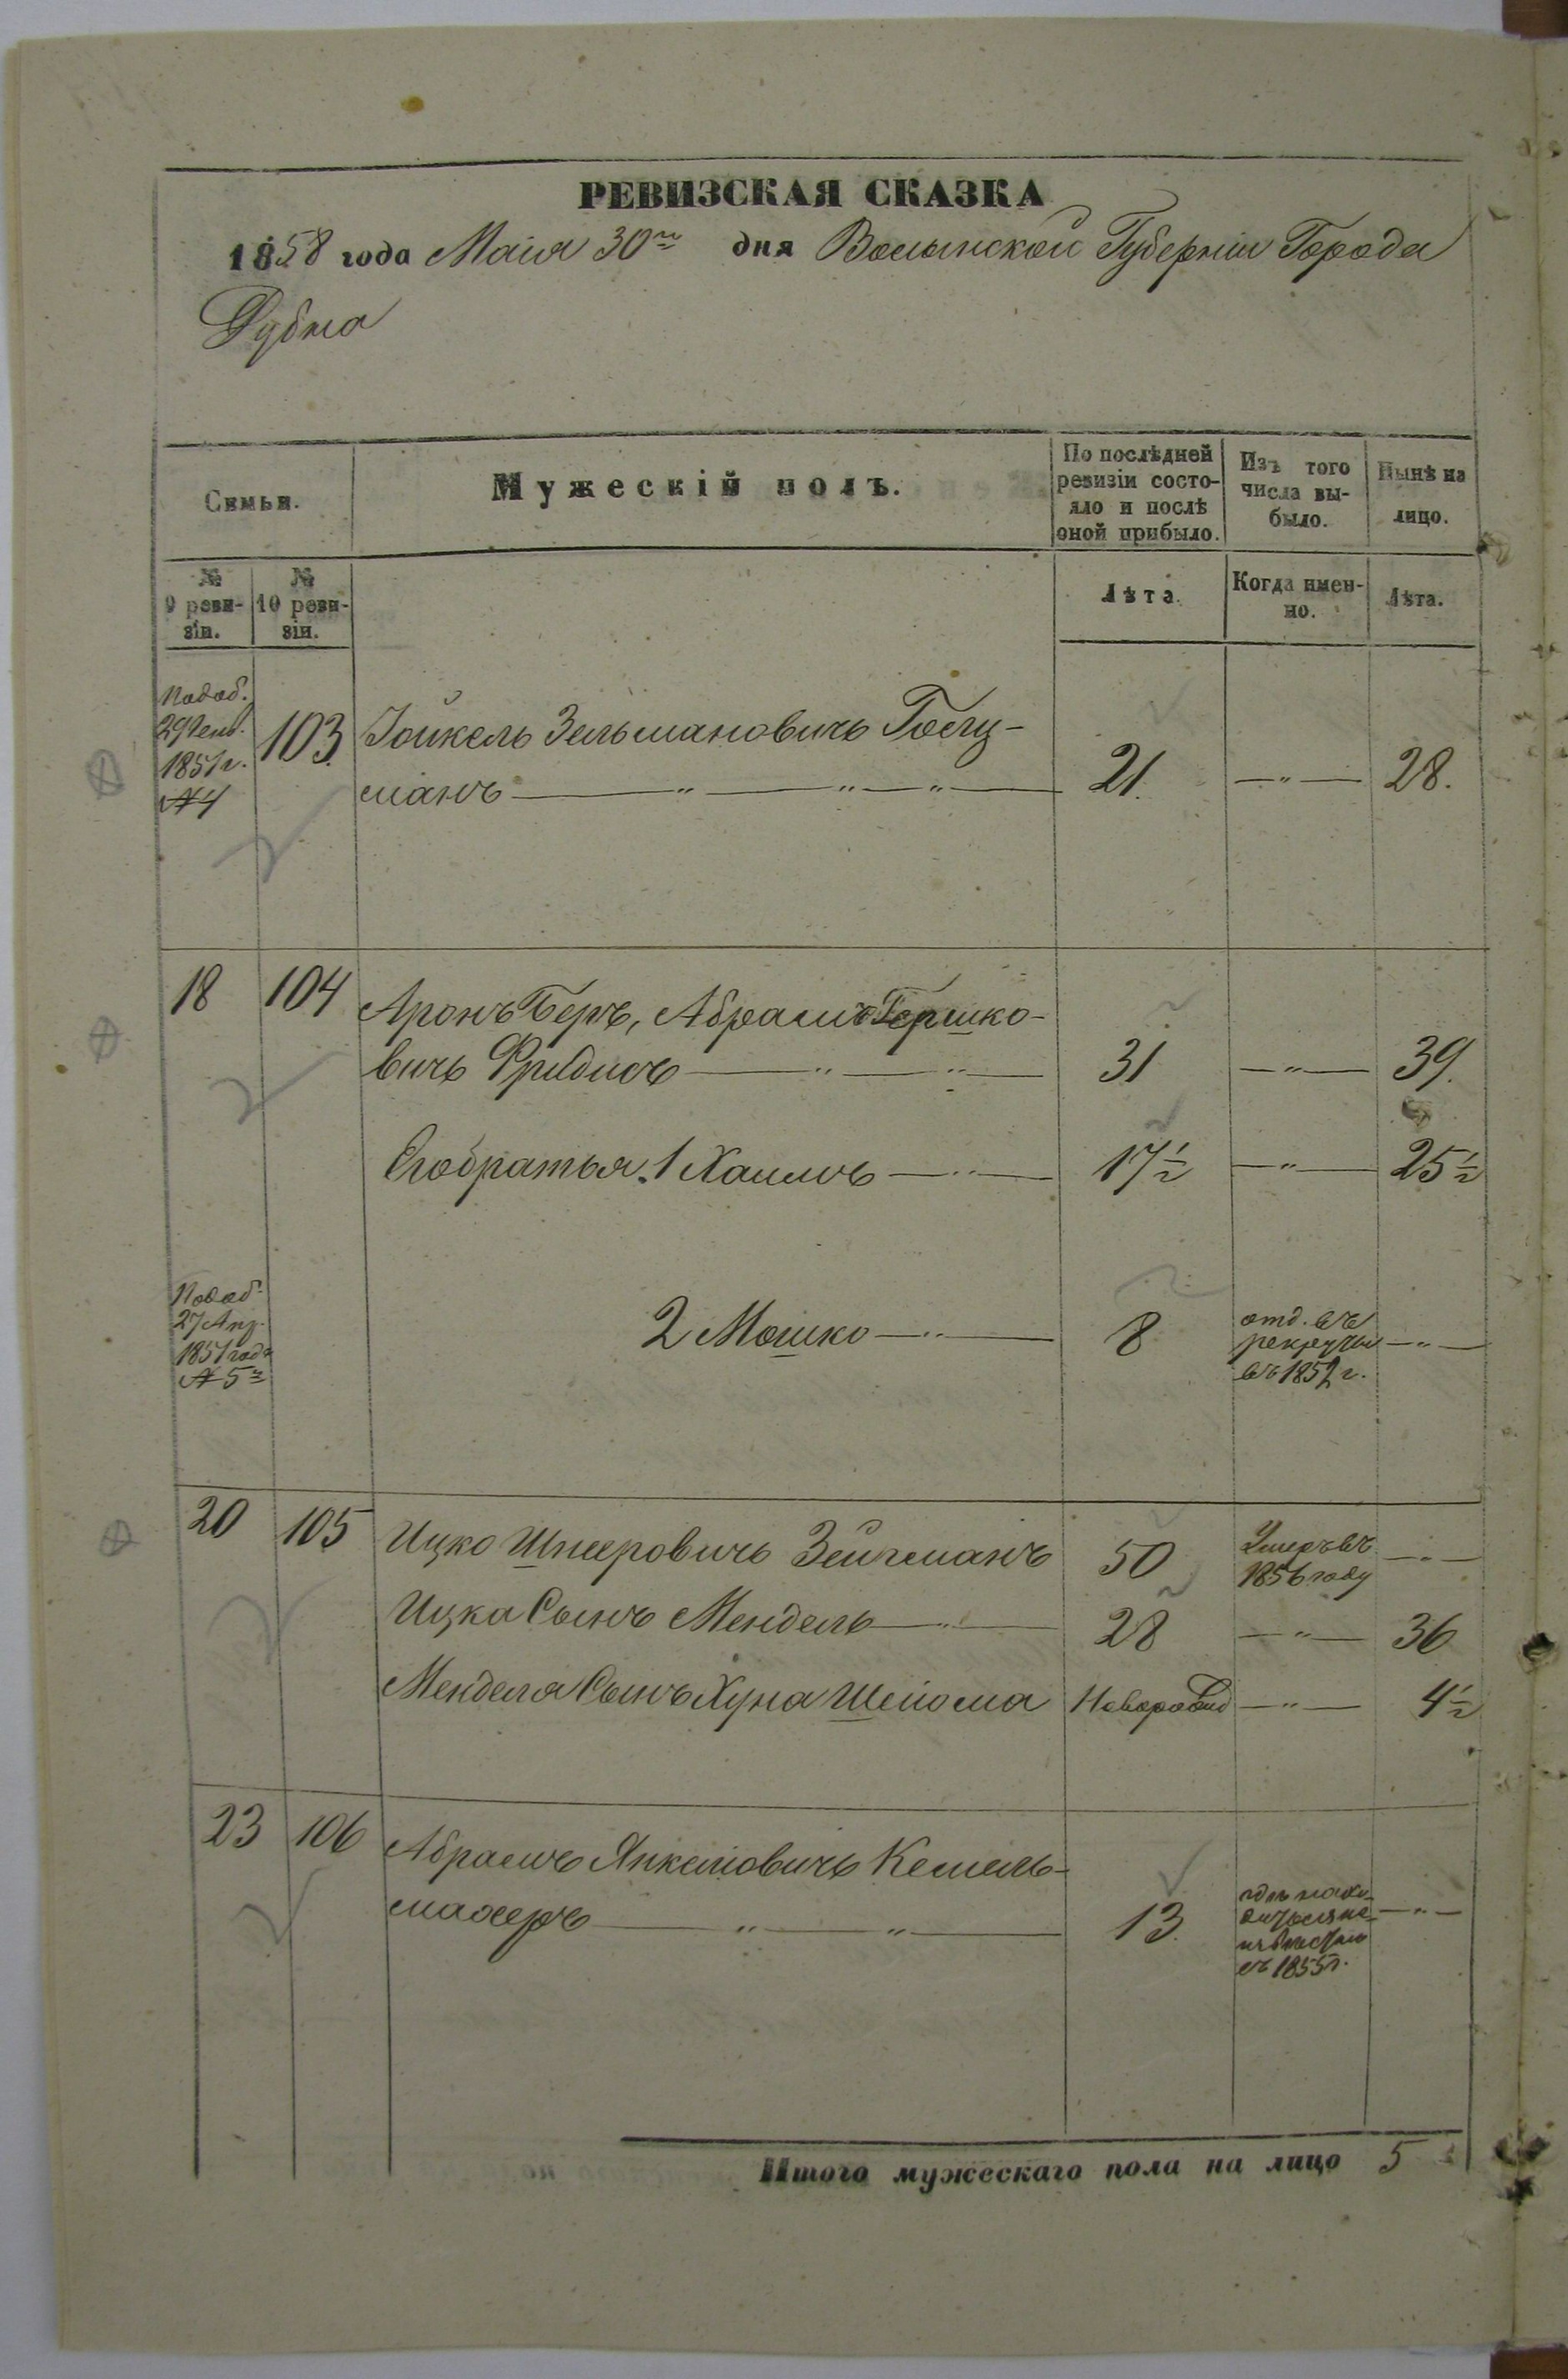 РЕВИЗСКАЯ СКАЗКА
1858 года Маія 30го дня Волынской Губерніи Города
Дубна
Семьи.
Мужескій полъ.
По послѣдней
ревизіи состо-
яло и послѣ
оной прибыло.
Изъ того
числа вы-
было.
Нынѣ на
лицо.
№
9 реви-
зіи.
№
10 реви-
зіи.
Лѣта.
Когда имен-
но.
Лѣта.
1851 г.
№ 4
103
Іойкель Зельмановичъ
манъ — " — " — " — 21. — " — 28.
18 104 Аронъ Беръ, Абрамъ Гершко-
вичъ Фридисъ — " — " — 31 — " — 39.
Его братья. 1 Хаимъ — " — 17½ — " — 25½
27 Апр.
1851 года
№ 5
2 Мошко — " — 8
отд. въ
рекруты — " —
въ 1852 г.
20 105 Ицко Шмеровичъ Зейгманъ 50
Умеръ въ
1856 году — " —
Ицка Сынъ Мендель — " — 28 — " — 36
Менделя Сынъ Хуна Шейома Новорожд — " — 4½
23 106 Абрамъ Янкелювичъ Кесель-
махеръ — " — " — 13.
гдѣ нахо-
дится не-
извѣстно
съ 1855 г. — " —
Итого мужескаго пола на лицо 5